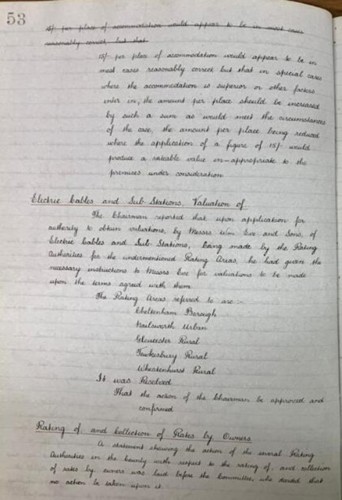 53
15/- per place of accommodation would appear to be in most cases
reasonably correct but that
15/- per place of accommodation would appear to be in
most cases reasonably correct but that in special cases
where the accommodation is superior or other factors
enter in, the amount per place should be increased
by such a sum as would meet the circumstances
of the case, the amount per place being reduced
where the application of a figure of 15/- would
produce a rateable value in-appropriate to the
premises under consideration
Electric Cables and Sub-Stations, Valuation of.
The Chairman reported that upon application for
authority to obtain valuations, by Messrs Wm Eve and Sons, of
Electric Cables and Sub-Stations, being made by the Rating
Authorities for the undermentioned Rating Areas, he had given the
necessary instructions to Messrs Eve for valuations to be made
upon the terms agreed with them.
The Rating Areas referred to are :-
Cheltenham Borough
Nailsworth Urban
Gloucester Rural
Tewkesbury Rural
Wheatenhurst Rural
It was Resolved
That the action of the Chairman be approved and
confirmed
Rating of, and Collection of Rates by Owners
A statement showing the action of the several Rating
Authorities in the County with respect to the rating of, and collection
of rates by owners was laid before the Committee, who decided that
no action be taken upon it.